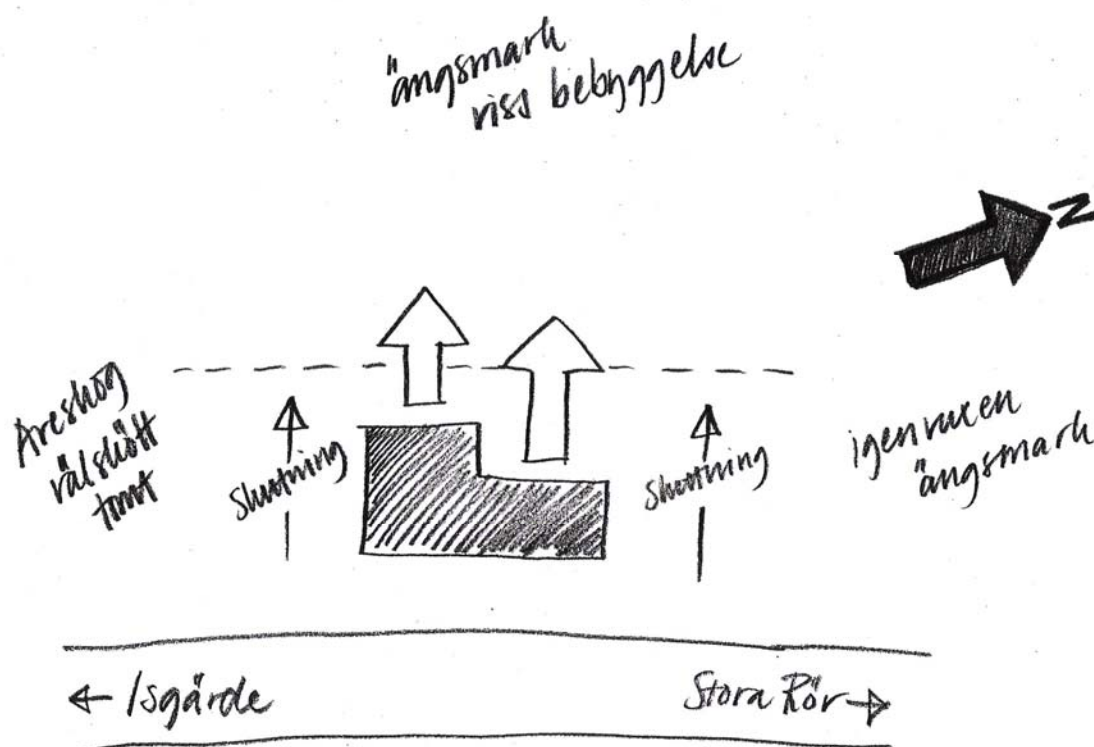 ängsmark
viss bebyggelse
N
Areskog
välskött
tomt
Sluttning
Sluttning
igenvuxen
ängsmark
← Isgärde
Stora Rör →